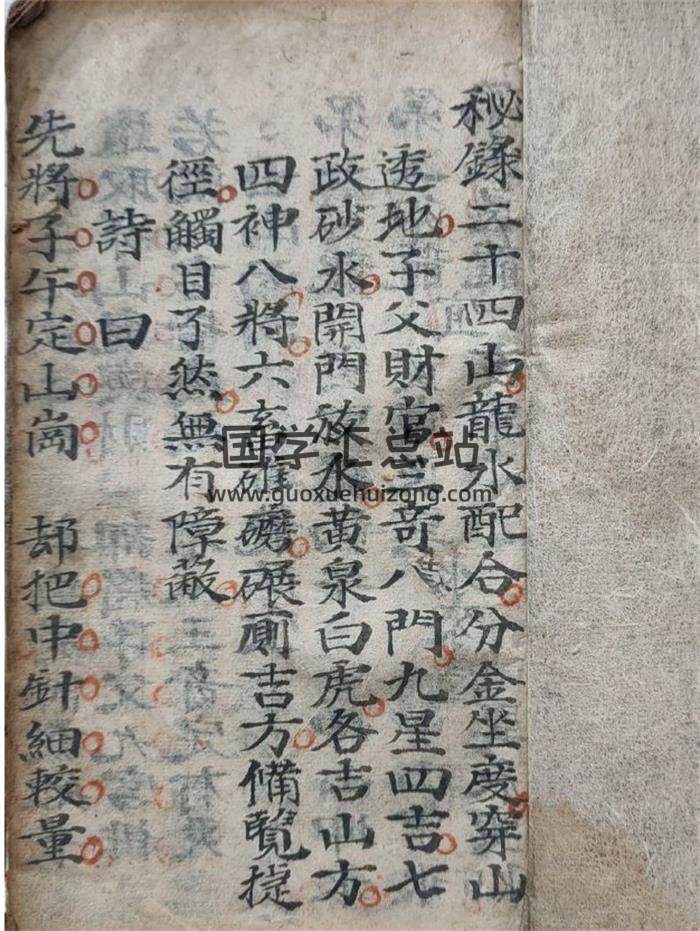 秘錄二十四山龍水配合分金坐度穿山
透地子父財官三奇八門九星四吉七
政砂水開門放水黃泉白虎各吉山方
四神八將六畜碓磨碾厠吉方備覽捷
徑觸目了然無有障蔽
詩曰
先將子午定山崗 却把中針細較量
国学汇总站
www.guoxuehuizong.com